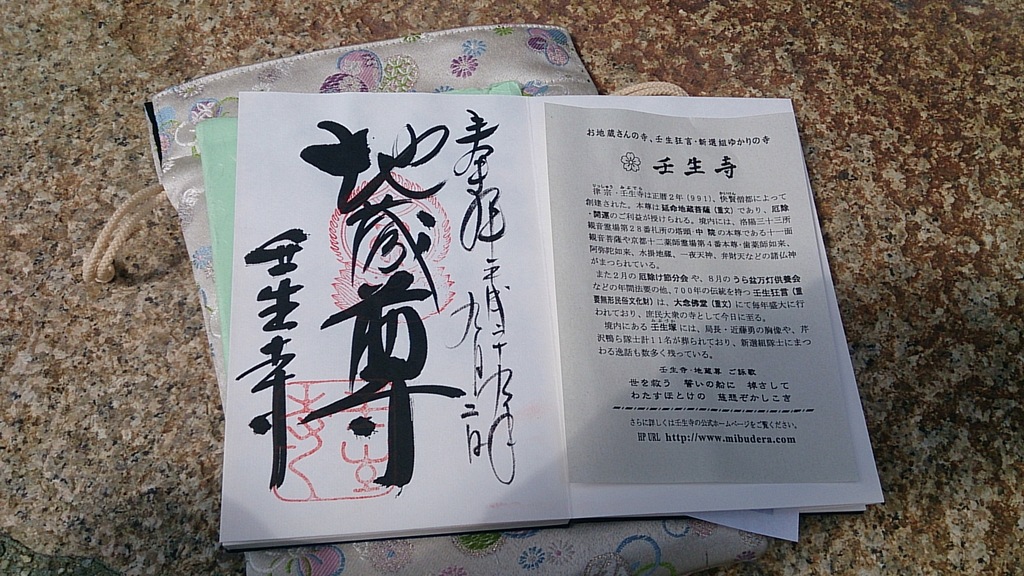 奉拝
平成二十九年
九月二日
地蔵尊
壬生寺
お地蔵さんの寺、壬生狂言・新選組ゆかりの寺
壬生寺
律宗・壬生寺は正暦2年(991)、快賢僧都によって
創建された。本尊は延命地蔵菩薩(重文)であり、厄除
・開運のご利益が授けられる。境内には、洛陽三十三所
観音霊場第28番札所の塔頭・中院の本尊である十一面
観音菩薩や京都十二薬師霊場第4番本尊・歯薬師如来、
阿弥陀如来、水掛地蔵、一夜天神、弁財天などの諸仏神
がまつられている。
また2月の厄除け節分会や、8月のうら盆万灯供養会
などの年間法要の他、700年の伝統を持つ壬生狂言(重
要無形民俗文化財)は、大念佛堂(重文)にて毎年盛大に行
われており、庶民大衆の寺として今日に至る。
境内にある壬生塚には、局長・近藤勇の胸像や、芹
沢鴨ら隊士計11名が葬られており、新選組隊士にまつ
わる逸話も数多く残っている。
壬生寺・地蔵尊 ご詠歌
世を救う 誓いの船に 棹さして
わたすほとけの 慈悲ぞかしこき
さらに詳しくは壬生寺の公式ホームページをご覧ください。
HP URL http://www.mibudera.com